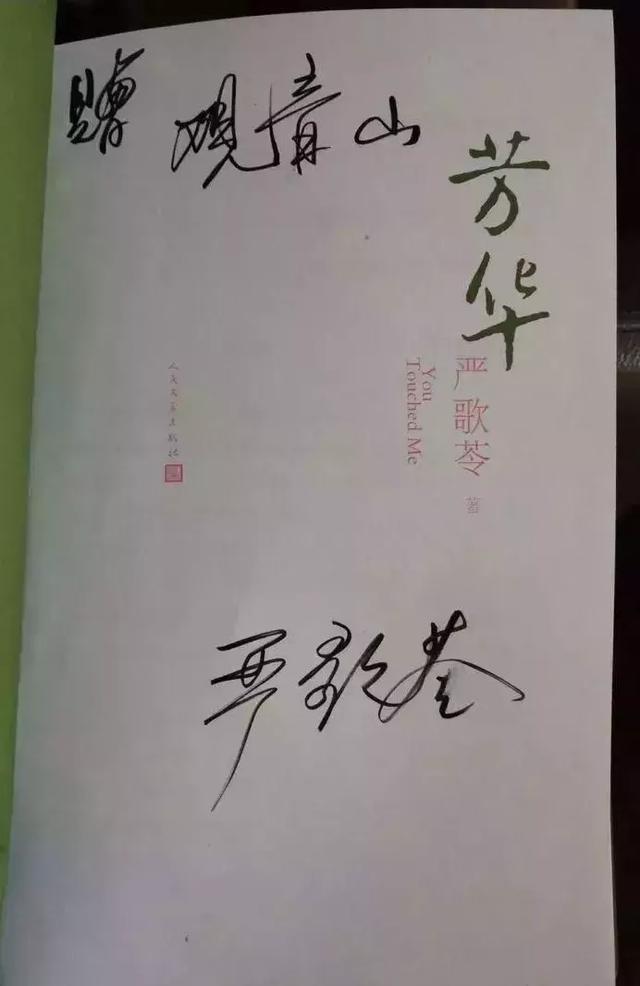 赠 观青山
芳华
严歌苓 著
You
Touched Me
人民文学出版社
严歌苓